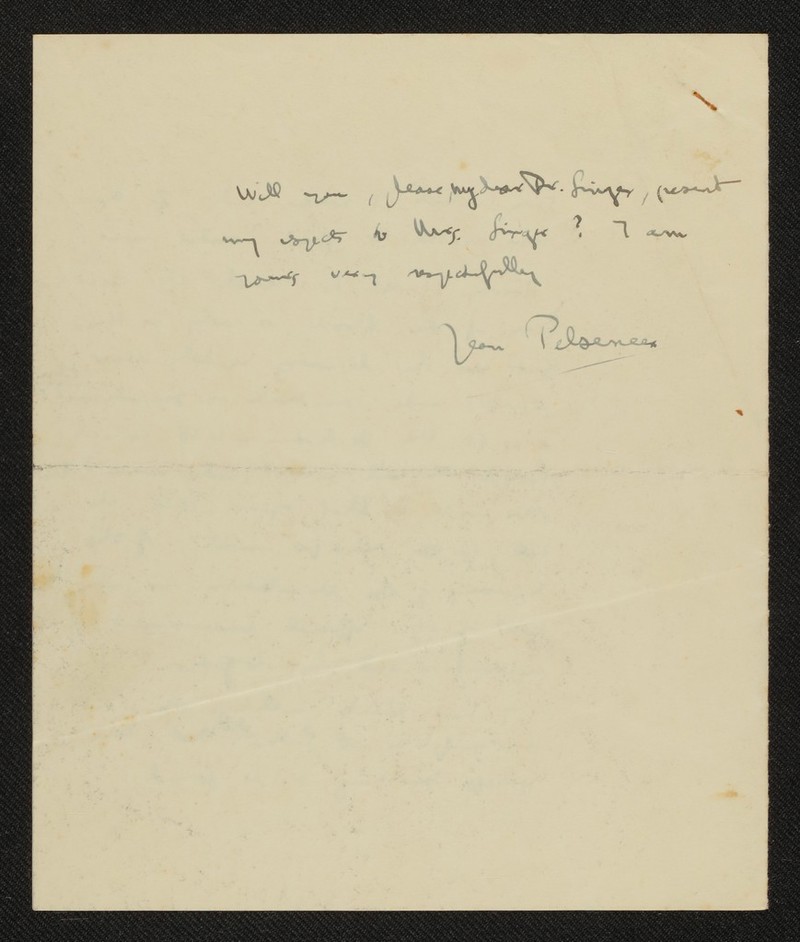 Will you, please, my dear Dr. Singer, present
my respects to Mrs. Singer? I am
yours very respectfully
Jean Pelseneer